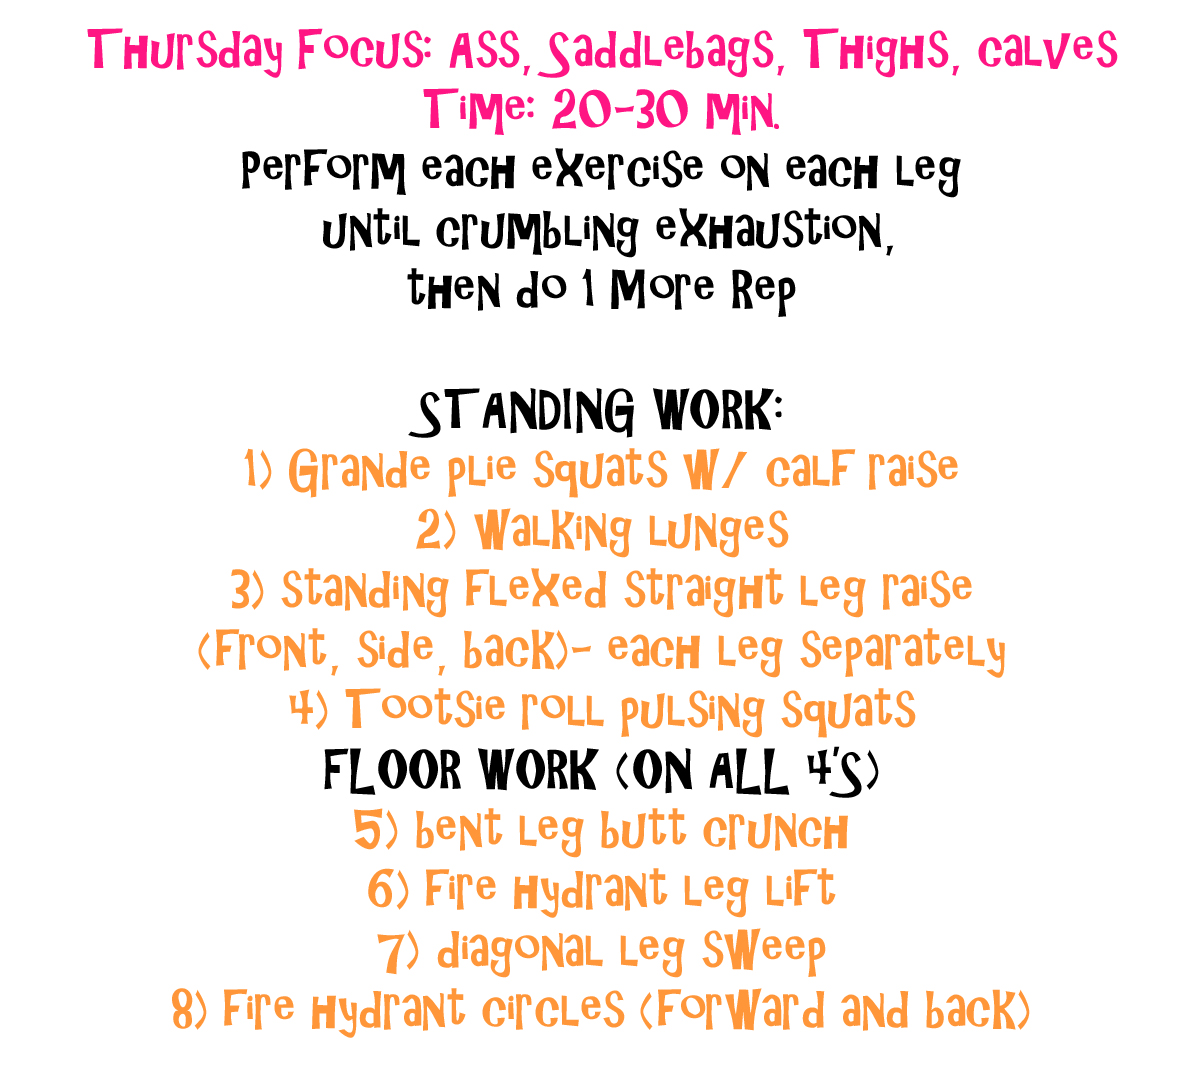 Thursday Focus: Ass, Saddlebags, Thighs, Calves
Time: 20-30 min.
Perform each exercise on each leg
until crumbling exhaustion,
then do 1 More Rep
STANDING WORK:
1) Grande plie squats w/ calf raise
2) Walking lunges
3) Standing flexed straight leg raise
(front, side, back)- each leg separately
4) Tootsie roll pulsing squats
FLOOR WORK (ON ALL 4'S)
5) bent leg butt crunch
6) Fire hydrant leg lift
7) diagonal leg sweep
8) Fire hydrant circles (forward and back)